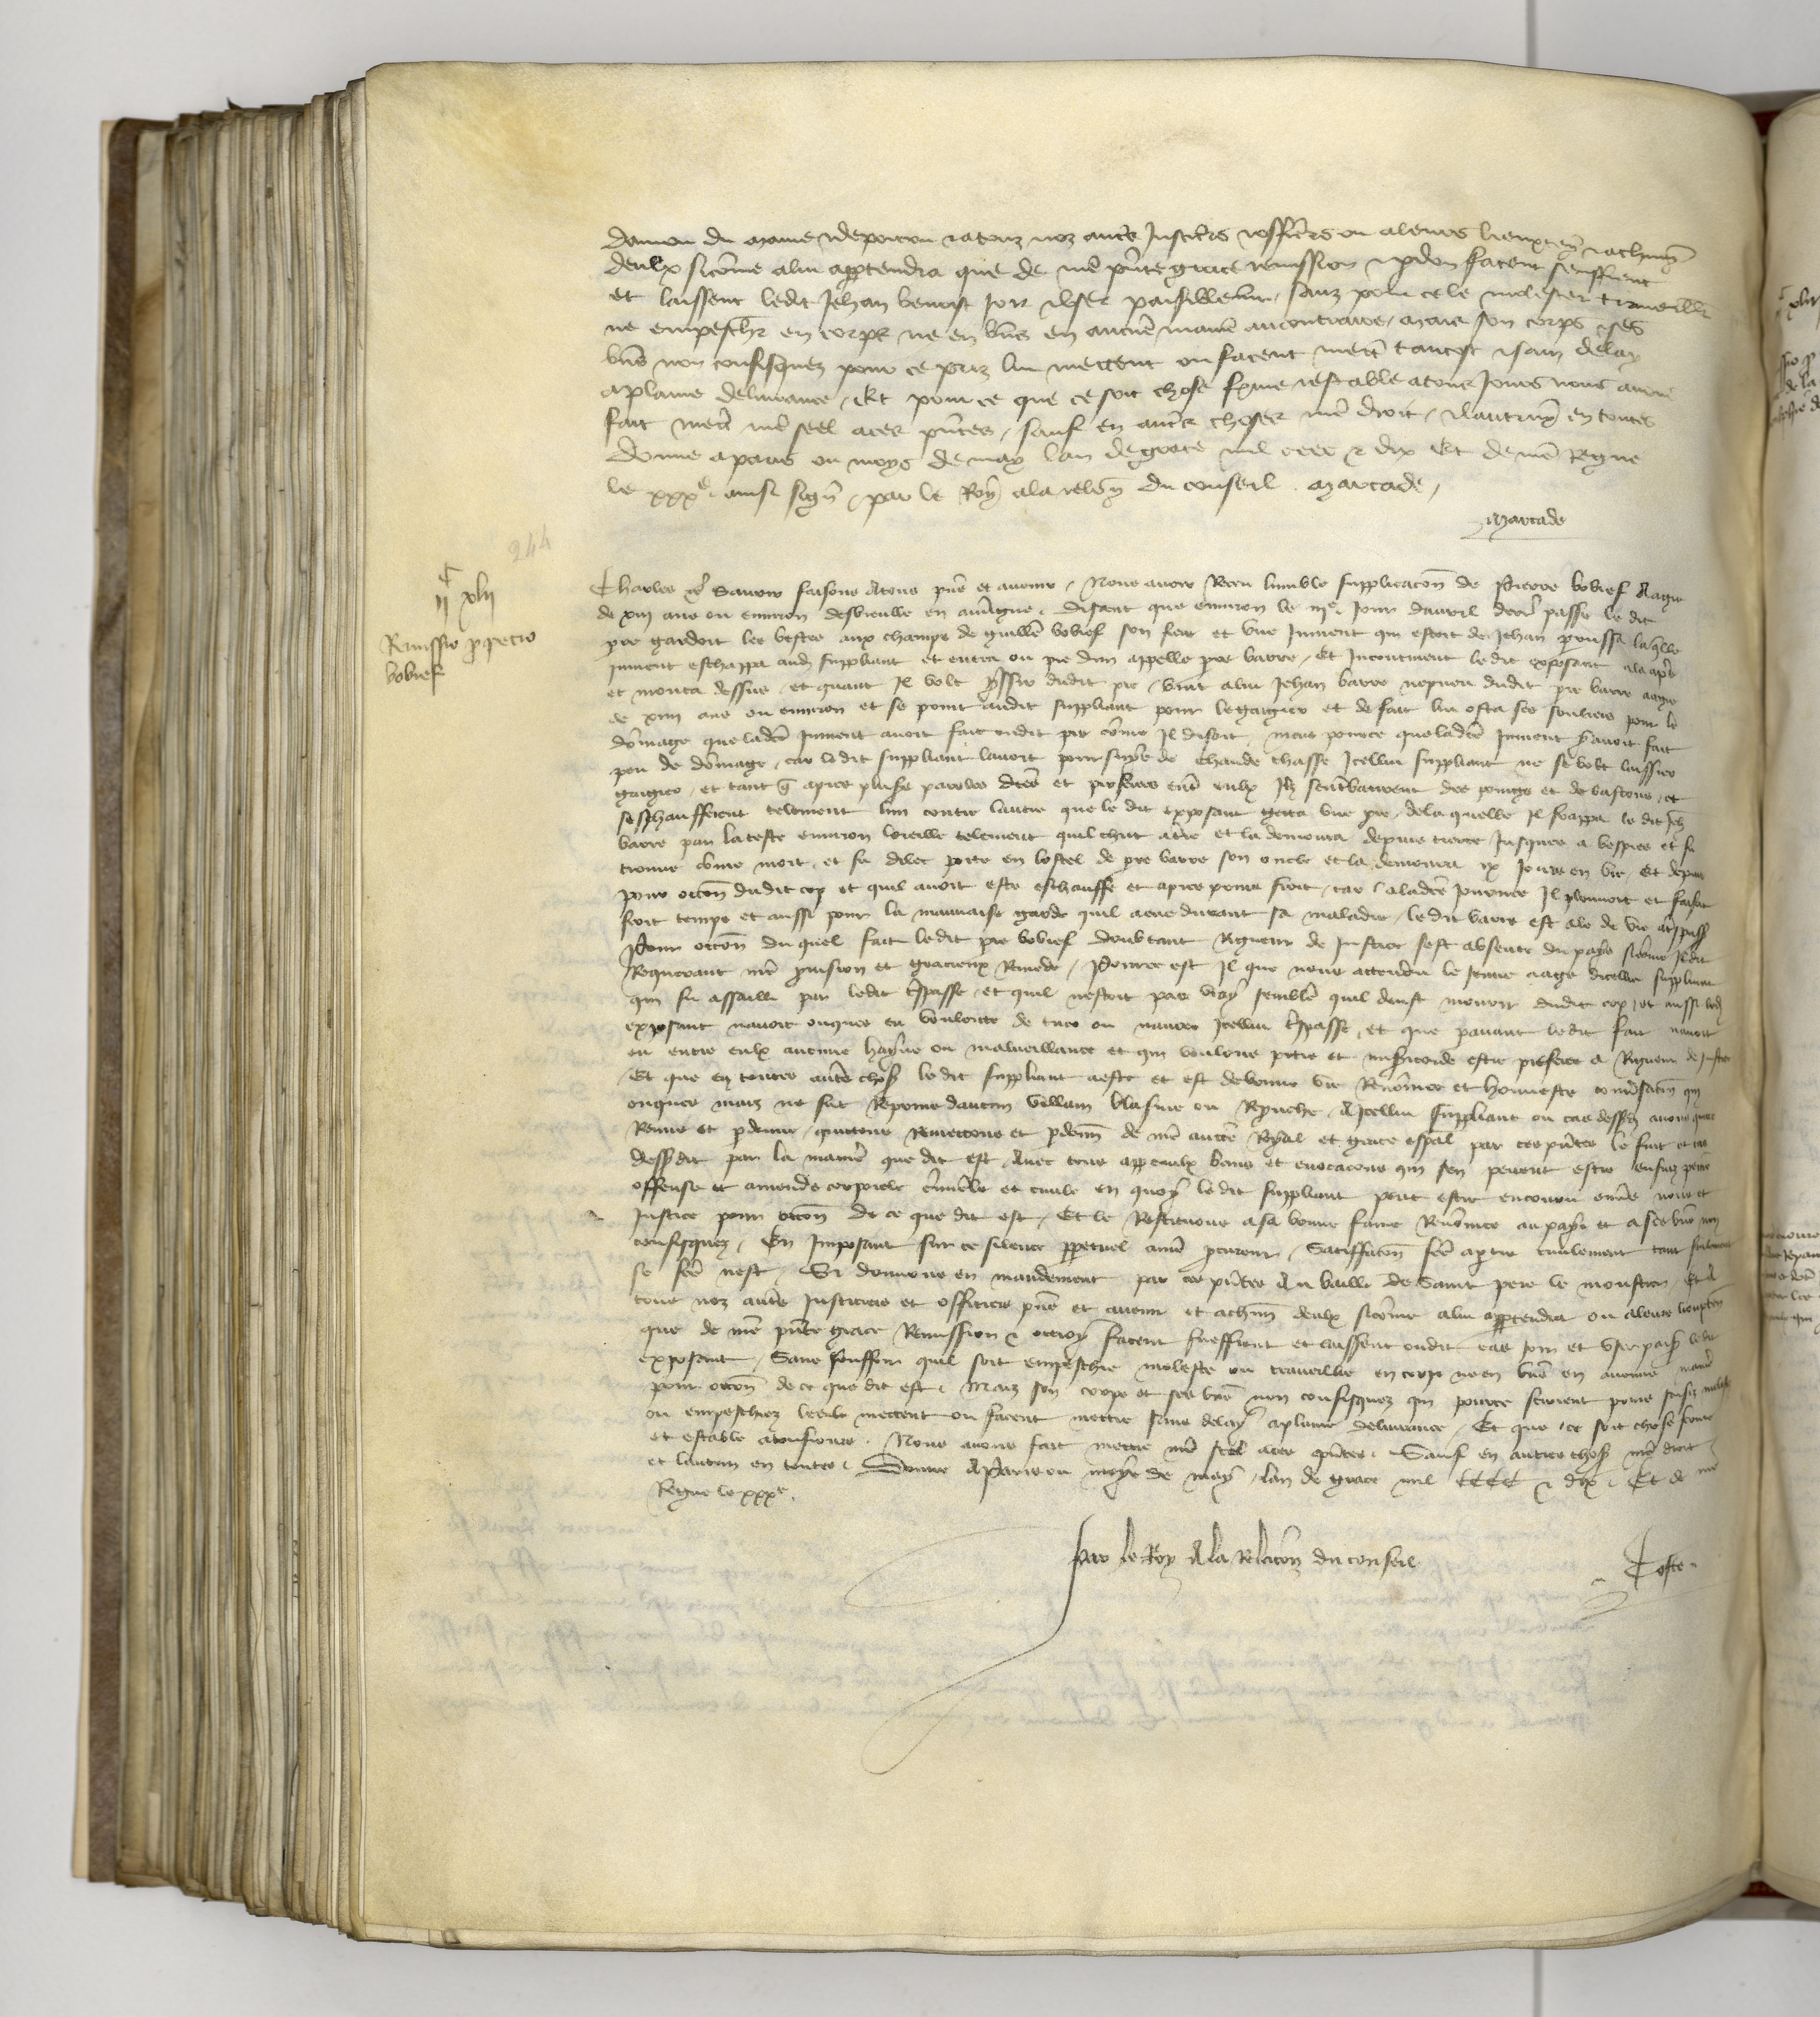 et a touz noz autres Justiciers officiers ou a leurs lieuxten
deulx sicome a lui appartendra que de nre pnte grace remission pdon facent seuffrent
et laissent ledit Jehan benoist joir user paisiblement sanz pour ce le molester travaillr
ne empeschr en corps ne en bns en aucune maniere au contraire mais son corps ses
bns non confisquez pour ce priz lui mettent ou facent mectre tantost sanz delay
a plaine delivrance Et pour ce que ce soit chose ferme estable a touz jours nous avons
fait mectre nre seel a ces pntes sauf en autres choses nre droit lautruy en toutes
donne a paris ou moys de may lan de grace mil cccc dix Et de nre Regne
le xxxe ainsi signe par le Roy a la relon du conseil Marcade
Marcade
244
c
ii xlii
Remissio p petro
bobief
Charles Savoir faisons A tous pns et avenir Nous avoir Receu lumble supplicacon de Pierre bobief Aagie
de xiii ans ou environ disant que environ le iije jour davril derr passe le dit
pre gardoit les bestes aux champs de guille bobief son et une jument qui estoit de Jehan laqlle
jument eschappa aud suppliant et entra ou pre dun appelle pre barre Et incontinent ledit exposant ala apres
et monta dessus et quant Il volt yssir dudit pre vint a lui Jehan barre nepveu dudit pre barre aagie
de xiiii ans ou environ et se print audit suppliant pour le gaigier et de fait lui osta ses souliers pour le
domage que ladicte jument avoit fait oudit pre come Il disoit mais pource que ladicte jument y avoit fait
pou de domage car ledit suppliant lavoit poursuye de chaude chasse Icellui suppliant ne se volt laissier
gaigier et tant q apres plus paroles dictes et proferees entre eulx Ilz sentrebatirent des poings et de bastons et
seschaufferent telement lun contre lautre que le dit exposant gecta une pre de laquelle Il frappa le dit Jeh
barre par la teste environ loreille telement quil chut a tre et la demoura depuis tierce jusques a vespres et fu
trouve come mort et fu dilec porte en lostel de pre barre son oncle et la demoura ix jours en vie Et depuis
pour occon dudit cop et quil avoit este eschauffe et apres prins froit car a ladicte journee Il plouvoit et faisoit
froit temps et aussi pour la mauvaise garde quil a eue durant sa maladie le dit barre est ale de vie a trespass
Pour occon du quel fait ledit pre bobief doubtant Rigueur de justice sest absente du pays sicome Il dit
Requerant nre provision et gracieux Remede Pource est Il que nous attendu le jeune aage dicellui suppliant
qui fu assailli par ledit trespasse et quil nestoit pas vray semblable quil deust mourir dudit cop et aussi led
exposant navoit onques eu voulente de tuer ou navrer Icellui trespasse et que pavant ledit fait navoit
eu entre eulx aucune hayne ou malveillance et qui voulons pitie et misericorde estre preferee a Rigueur de justice
Et que en toutes autres choses ledit suppliant a este et est de bonne vie Renomee et honneste conversacon qui
onques mais ne fut Reprins daucun villain blasme ou Reprouche A icellui suppliant ou cas dessus avons quicte
Remis et pdonne quictons Remettons et pdonnons de nre auctorite Royal et grace espal par ces pntes le fait et cas
dessusdit par la maniere que dit est Avec tous appeaulx bans et evocacons qui sen peuent estre ensuiz peine
offense et amende corporele criminele et civile en quoy ledit suppliant peut estre encouru envers nous et
justice pour occon de ce que dit est Et le Restituons a sa bonne fame Renomee au pays et a ses bns non
confisquez En imposant sur ce silence ppetuel a nre procureur Satiffacon faicte a ptie civilement tant seulement
se faicte nest Si donnons en mandement par ces pntes Au bailli de Saint pere le moustier Et A
tous noz autres Justiciers et officiers pns et avenir et a chun deulx sicome a lui appartendra ou a leurs lieuxten
que de nre pnte grace Remission ottroy facent seuffrent et laissent oudit cas joir et user paisiblement ledit
exposant Sans souffrir quil soit empeschie moleste ou traveillie en corps ne en bns en aucune maniere
pour occon de ce que dit est Mais son corps et ses bns non confisquez qui pource seroient prins saisiz
ou empeschiez mettent ou facent mettre sans delay a plaine delivrance Et que ce soit chose ferme
et estable a tousjours Nous avons fait mettre nre seel a ces pntes Sauf en autres choses nre droit
et lautruy en toutes Donne A Paris ou moys de may lan de grace mil CCCC dix Et de nre
Regne le xxxe
Par le Roy A la Relacon du conseil
Coste